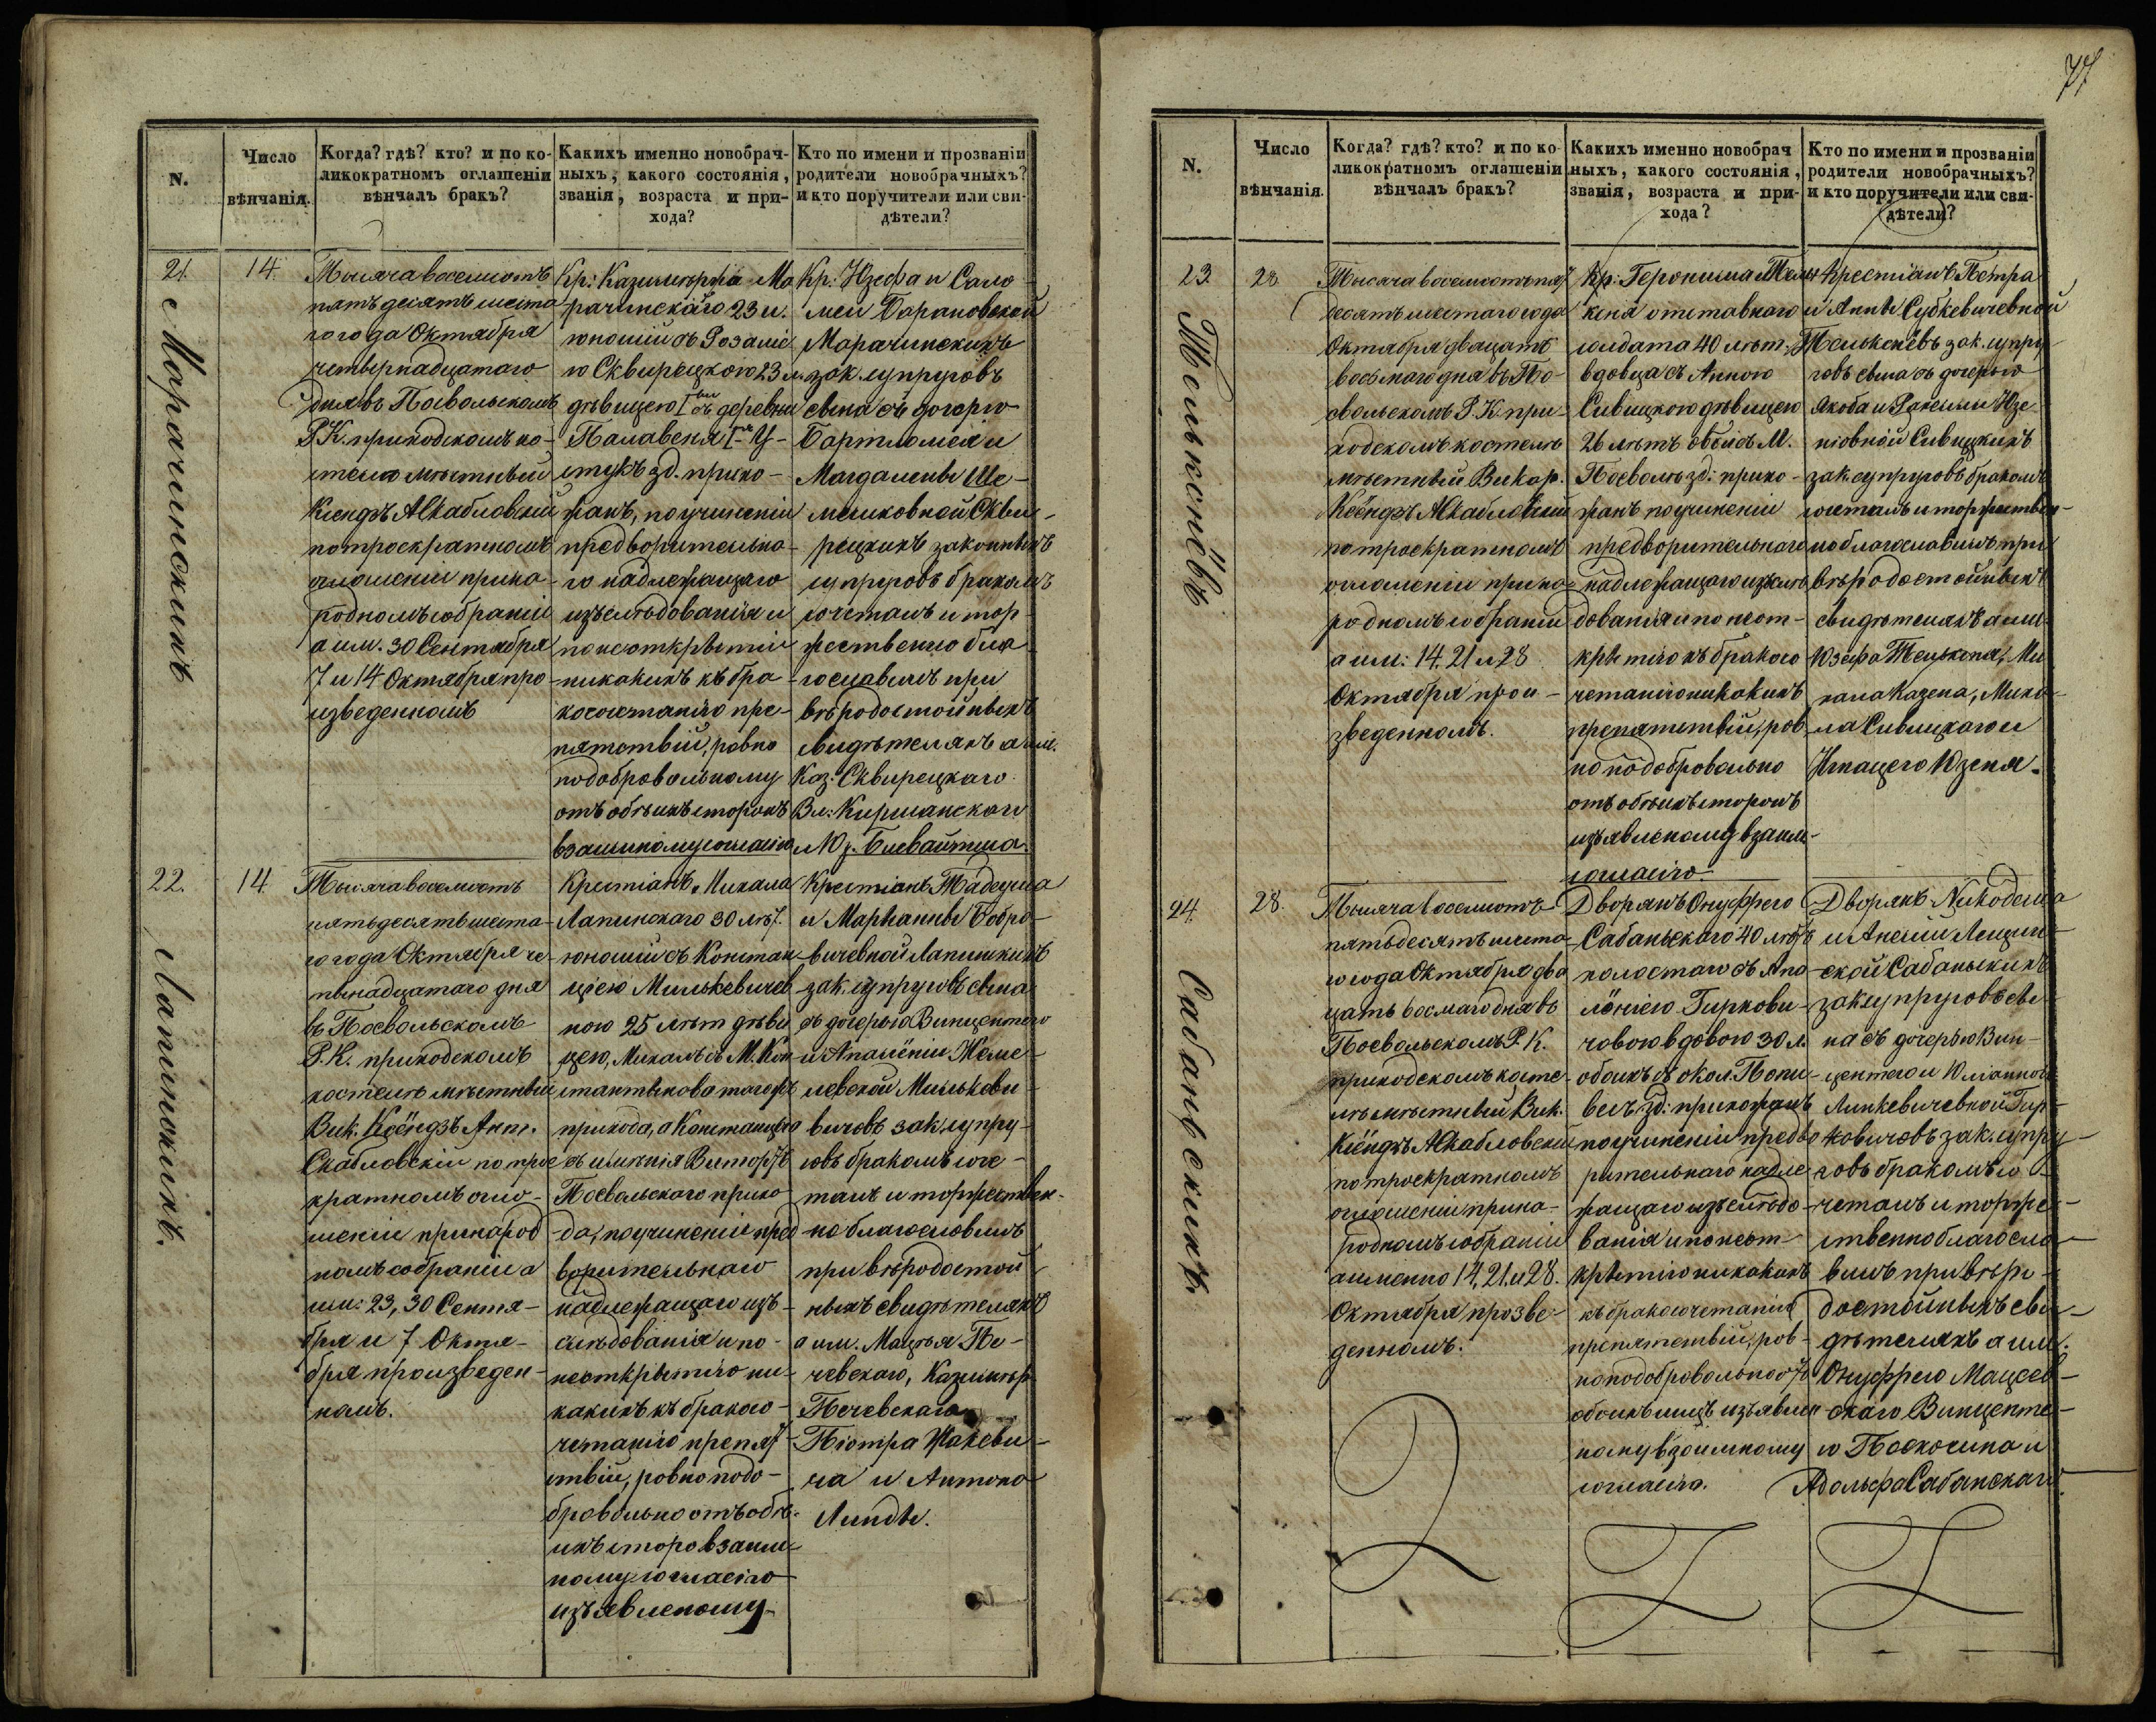 77
N.
Число
вѣнчанія.
Когда? гдѣ? кто? и по ко-
ликократномъ оглашеніи
вѣнчалъ бракъ?
Какихъ именно новобрач-
ныхъ, какого состоянія,
званія, возраста и при-
хода?
Кто по имени и прозваніи
родители новобрачныхъ?
и кто поручители или сви-
дѣтели?
21.
с Морачинскихъ
14
Тысяча восемьсотъ
пятьдесятъ шеста
го года Октября
четырнадцатаго
дня въ Посвольскомъ
Р.К. приходскомъ ко-
стелѣ мѣстный
Ксендзъ А Скабловскій
по троекратномъ
оглашеніи прина-
родномъ собраніи
а им. 30 Сентября
7 и 14 Октября про
изведенномъ
Кр: Казимѣржа Мо
рачинскаго 23 л.
юношій съ Розаліе
ю Сквирецкою 23 л.
дѣвицею съ деревни
Палавеня
стукъ зд. прихо-
жанъ, по учиненіи
предворительна-
го надлежащаго
изъслѣдованія и
по неоткрытіи
никакихъ къ бра
косочетанію пре-
пятствій, равно
подобровольному
отъ обѣихъ сторонъ
взаимному согласію
Кр: Юзефа и Сало
меи Барановской
Морачинскихъ
зак. супруговъ
сына съ дочерью
Бартломея и
Магдалены Ше-
мешковной Скви-
рецкихъ законныхъ
супруговъ бракомъ
сочеталъ и тор-
жественно бла
гославилъ при
вѣродостойныхъ
свидѣтеляхъ а им.
Каз: Сквирецкаго
Вл: Киршанскаго
и Юз. Блевайтиса.
22.
Лапинскихъ.
14.
Тысяча восемьсотъ
пятьдесятъ шеста-
го года Октября че-
тынадцатаго дня
въ Посвольскомъ
Р.К. приходскомъ
костелѣ мѣстный
Вик. Ксёндзъ Ант.
Скабловскій по трое
кратномъ огло-
шеніи принарод
номъ собраніи а
им: 23, 30 Сентя-
бря и 7 Октя-
бря произведен-
номъ.
Крестіанъ Михала
Лапинскаго 30 лѣт.
юношій съ Констан
ціею Милькевичев
ною 25 лѣт дѣви
цею, Михалъ съ М. Кон
стантынова тогожъ
прихода, а Констанція
съ имѣнія
Посвольскаго прихо
да, по учиненіи пред
ворительнаго
надлежащаго изъ-
слѣдованія и по-
неоткрытію ни-
какихъ къ брако со-
четанію препят-
ствій, равно подо-
бровольно отъ обѣ-
ихъ сторо взаим-
ному согласію
изъявленому
Крестіанъ Тадеуша
и Марианны Бобро-
вичевной Лапинскихъ
зак. супруговъ сына
съ дочерью Винцентего
и Апалёніи Жоме-
ловской Милькеви-
вичовъ зак. супру-
говъ бракомъ соче-
талъ и торжествен-
но благословилъ
при вѣродостой
ныхъ свидѣтеляхъ
а им. Мацѣя Пе-
чевскаго, Казимѣр
Печевскаго
Піотра Жакеви-
ча и Антона
Линды.
N.
Число
вѣнчанія.
Когда? гдѣ? кто? и по ко-
ликократномъ оглашеніи
вѣнчалъ бракъ?
Какихъ именно новобрач
ныхъ, какого состоянія,
званія, возраста и при-
хода?
Кто по имени и прозваніи
родители новобрачныхъ?
и кто поручители или сви-
дѣтели?
23.
Телькснёвъ
28
Тысяча восемьсотъ пят
десятъ шестаго года
Октября двацатъ
восьмаго дня въ По-
свольскомъ Р.К. при-
ходскомъ костелѣ
мѣстный Викар.
Ксёндзъ А Скабловскій
по троекратномъ
оглошеніи прина-
родномъ собраніи
а им: 14. 21 и 28
Октября прои-
зведенномъ.
Кр: Геронима Тель
ксня отставнаго
солдата 40 лѣт.
вдовца съ Анною
Сивицкою дѣвицею
26 лѣтъ обоихъ М.
Посволь зд: прихо-
жанъ по учиненіи
предворительнаго
надлежащаго изъслѣ
дованія и по неот-
крытію къ брако со
четанію никакихъ
препятствій, рав
но подобровольно
отъ обѣихъ сторонъ
изъявленому взаим-
согласію.
Крестіанъ Петра
и Анны Субкевичевной
Тельксневъ зак. супру
говъ сына съ дочерью
Якоба и Юзе
Сивицкихъ
зак. супруговъ бракомъ
сочеталъ и торжествен-
но благославилъ при
вѣродостойныхъ
свидѣтеляхъ а им.
Юзефа Тельксня, Ми
хала Казена, Михо-
ла Сивицкаго и
Игнацего Юзеня.
24.
Сабаньскихъ
28.
Тысяча восемьсотъ
пятьдесятъ шеста
го года Октября два
цать восмаго дня въ
Посвольскомъ Р.К.
приходскомъ косте-
лѣ мѣстный Вик.
Ксёндзъ А Скабловскій
по троекратномъ
оглошеніи прина-
родномъ собраніи
а именно 14, 21, и 28.
Октября прозве-
денномъ.
Дворянъ Онуфрего
Сабаньскаго 40 лѣтъ
холостаго съ Апо
лёніею Гиркови-
човою вдовою 30 л.
обоихъ съ окол. Попи-
вель зд: прихожанъ
по учиненіи предво
рительнаго надле
жащаго изъслѣдо-
ванія и по неот-
крытію никакихъ
къ бракосочетанія
препятствій, рав-
но подобровольно отъ
обоихъ лицъ изъявлен
ному взаимному
согласію.
Дворянъ Nикодема
и Анеліи Лещин-
ской Сабаньскихъ
зак. супруговъ сы-
на съ дочерью Вин-
центего и Юліанной
Линкевичевной Гир-
ковичовъ зак. супру-
говъ бракомъ со-
четалъ и торже-
ственно благосла-
вилъ при вѣро-
достойныхъ сви-
дѣтеляхъ а им.
Онуфрего Мацеев-
скаго Винценте-
го Поскочина и
Адольфа Сабанскаго.